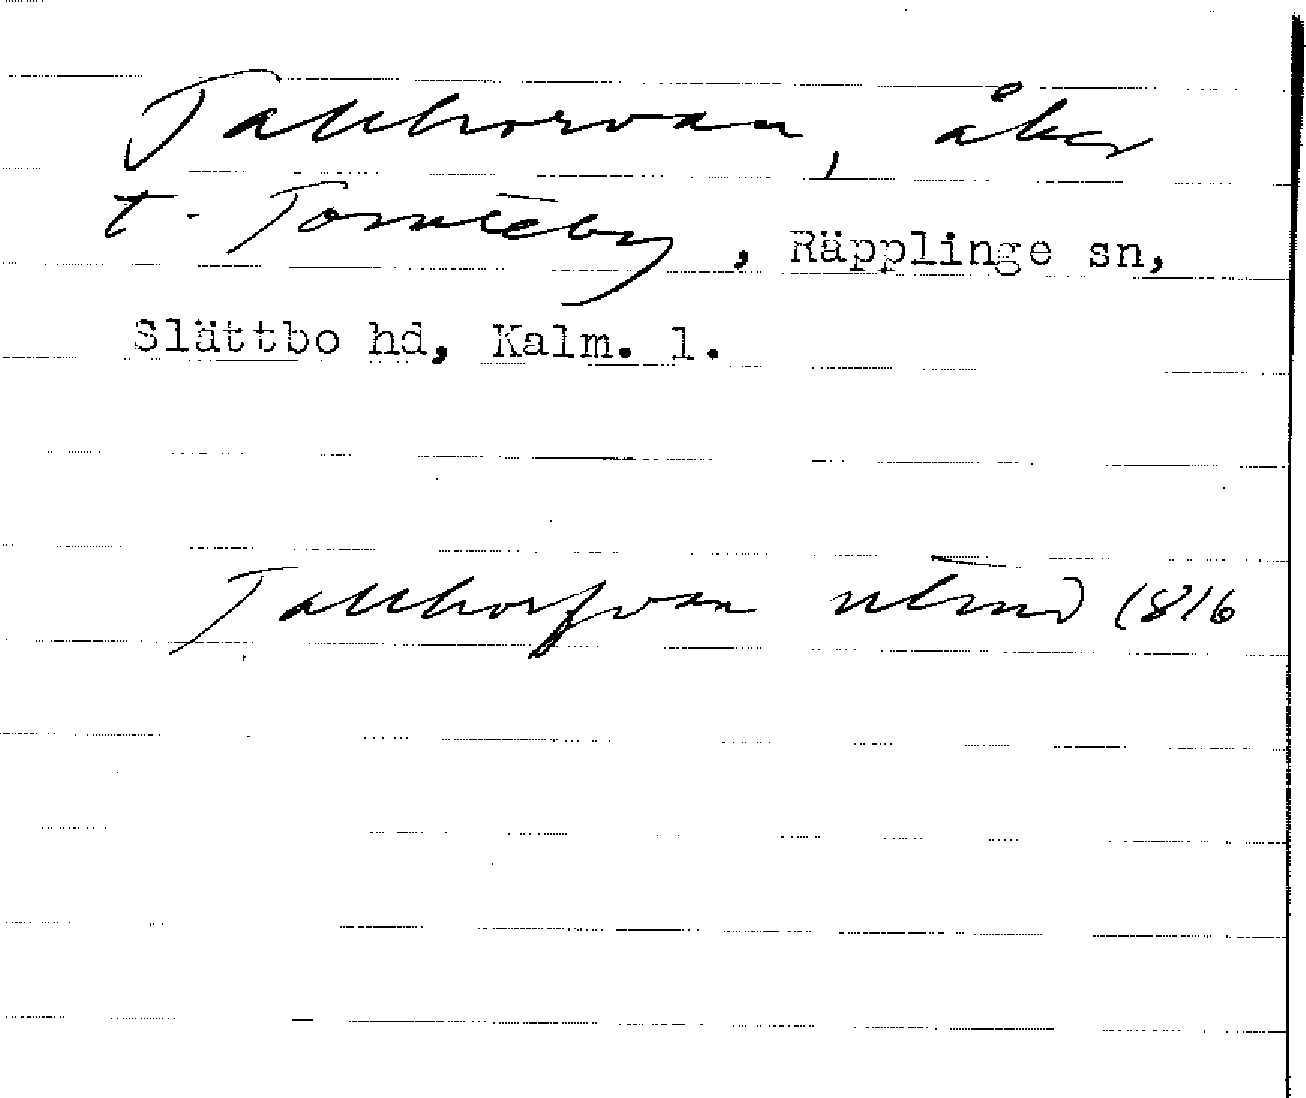 Tallhorvan, åker
t. Tomteby, Räpplinge sn,
Slättbo hd, Kalm. l.
Tallhorfvan 1816